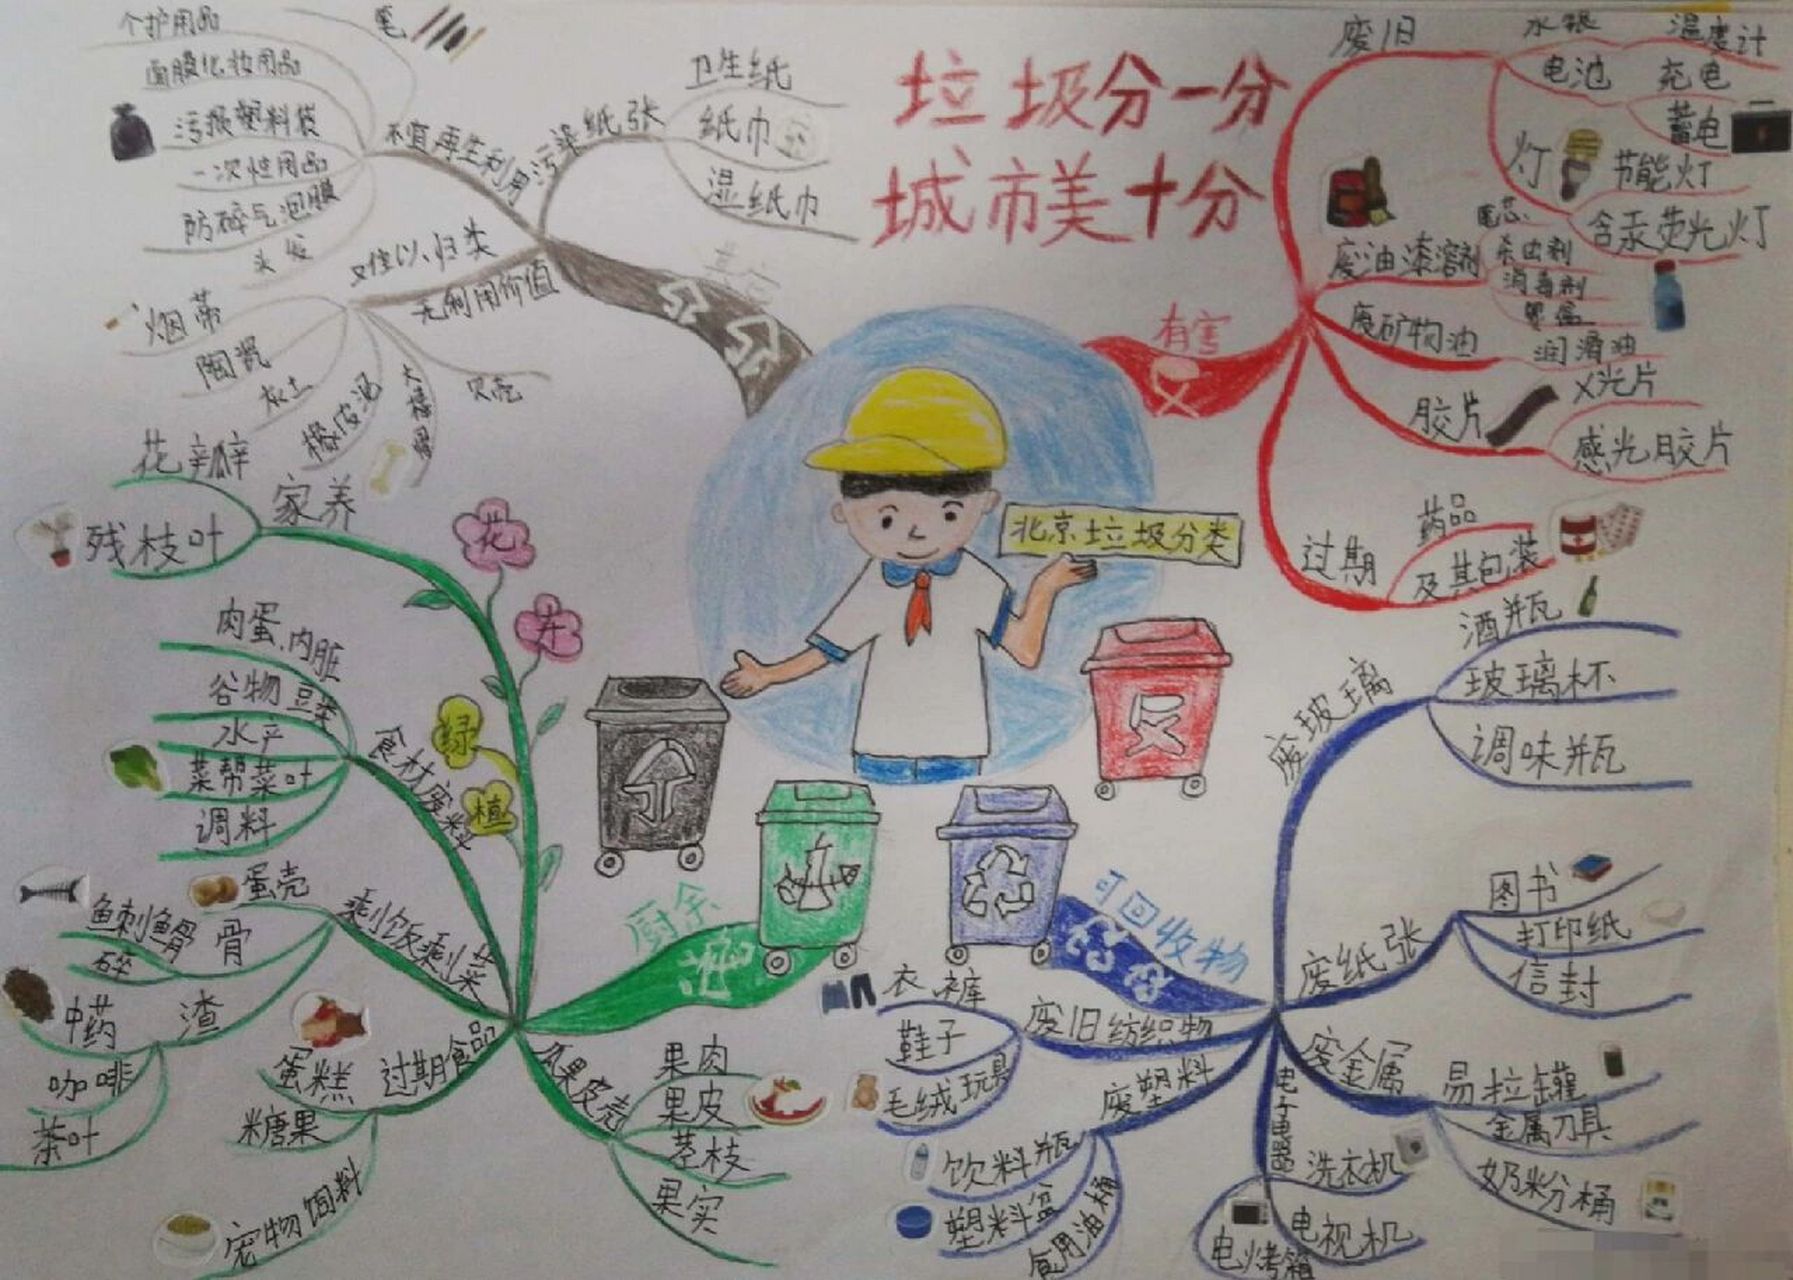 垃圾分一分
城市美十分
北京垃圾分类
其它
个护用品
笔
面膜化妆用品
污损塑料袋
一次性用品
防碎气泡膜
头发
不宜再生利用
污染纸张
卫生纸
纸巾
湿纸巾
难以归类
无利用价值
烟蒂
陶瓷
灰土
橡皮泥
大棒骨
贝壳
有害
废旧
水银
温度计
电池
充电
蓄电
灯
节能灯
含汞荧光灯
废油漆溶剂
笔芯
杀虫剂
消毒剂
墨盒
废矿物油
润滑油
胶片
X光片
感光胶片
过期
药品
及其包装
厨余
花卉绿植
家养
花瓣
残枝叶
食材废料
肉蛋、内脏
谷物豆类
水产
菜帮菜叶
调料
剩饭剩菜
蛋壳
鱼刺鱼骨
碎
骨
渣
中药
咖啡
茶叶
过期食品
蛋糕
糖果
宠物饲料
瓜果皮壳
果肉
果皮
茎枝
果实
可回收物
废玻璃
酒瓶
玻璃杯
调味瓶
废纸张
图书
打印纸
信封
废金属
易拉罐
金属刀具
奶粉桶
电子电器
洗衣机
电视机
电烤箱
废塑料
饮料瓶
塑料盆
食用油桶
废旧纺织物
衣、裤
鞋子
毛绒玩具